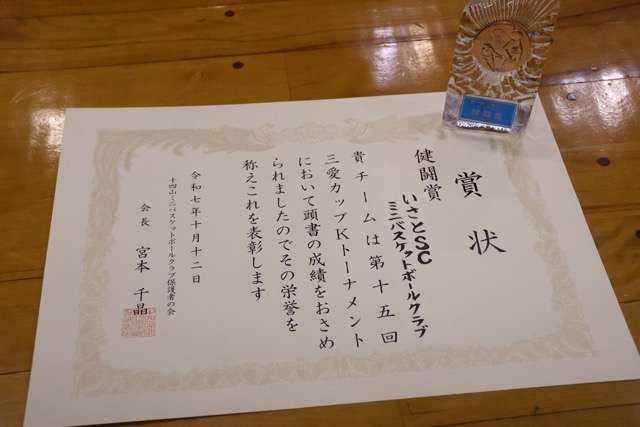 賞状
健闘賞
いさとSC
ミニバスケットボールクラブ
貴チームは第十五回
三愛カップKトーナメント
において頭書の成績をおさめ
られましたのでその栄誉を
称えこれを表彰します
令和七年十月十二日
十四山ミニバスケットボールクラブ保護者の会
会長 宮本 千晶